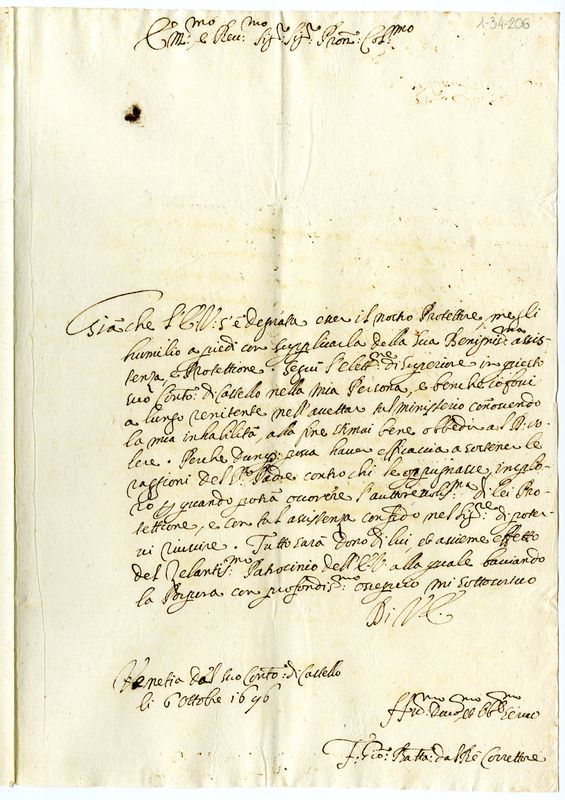 1-34-206
E.mo e Reu.mo Sig.r Sig.r Pron: Col.mo
Già che l'E.V: s'è degnata esser il nostro Protettore, me gli
humilio a piedi con supplicarla della sua Benignis.ma assis-
tenza, e Protettione. Seguì l'elett.ne di Superiore in questo
suo Conto: di Castello nella mia Persona, e benche io fossi
a lungo renitente nell'accettar il ministerio conoscendo
la mia inhabilità, alla fine stimai bene obbedir al di-vo-
lere. Perche dunq; possa hauer efficaccia a sostener le
raggioni del S.to Padre contro chi le oppugnasse, implo-
ro p quando potrà occorrere l'authoreuolis.ma di lei Pro-
tettione, e con tal assistenza confido nel Sig.re di poter-
ui riuscire. Tutto sarà dono di lui et assieme effetto
del Zelantis.mo Patrocinio dell'E.V. alla quale bacciando
la Porpora con profondis.mo ossequio mi sottoscriuo
Di V.E.
Venetia dal suo Conto: di Castello
li 6 Ottobre 1696
F. Gio: Batta: dal Rè Correttore